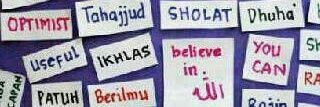 OPTIMIST
Tahajjud
SHOLAT
Dhuha'
useful
IKHLAS
believe
in الله
YOU
CAN
PATUH
Berilmu
Rajin